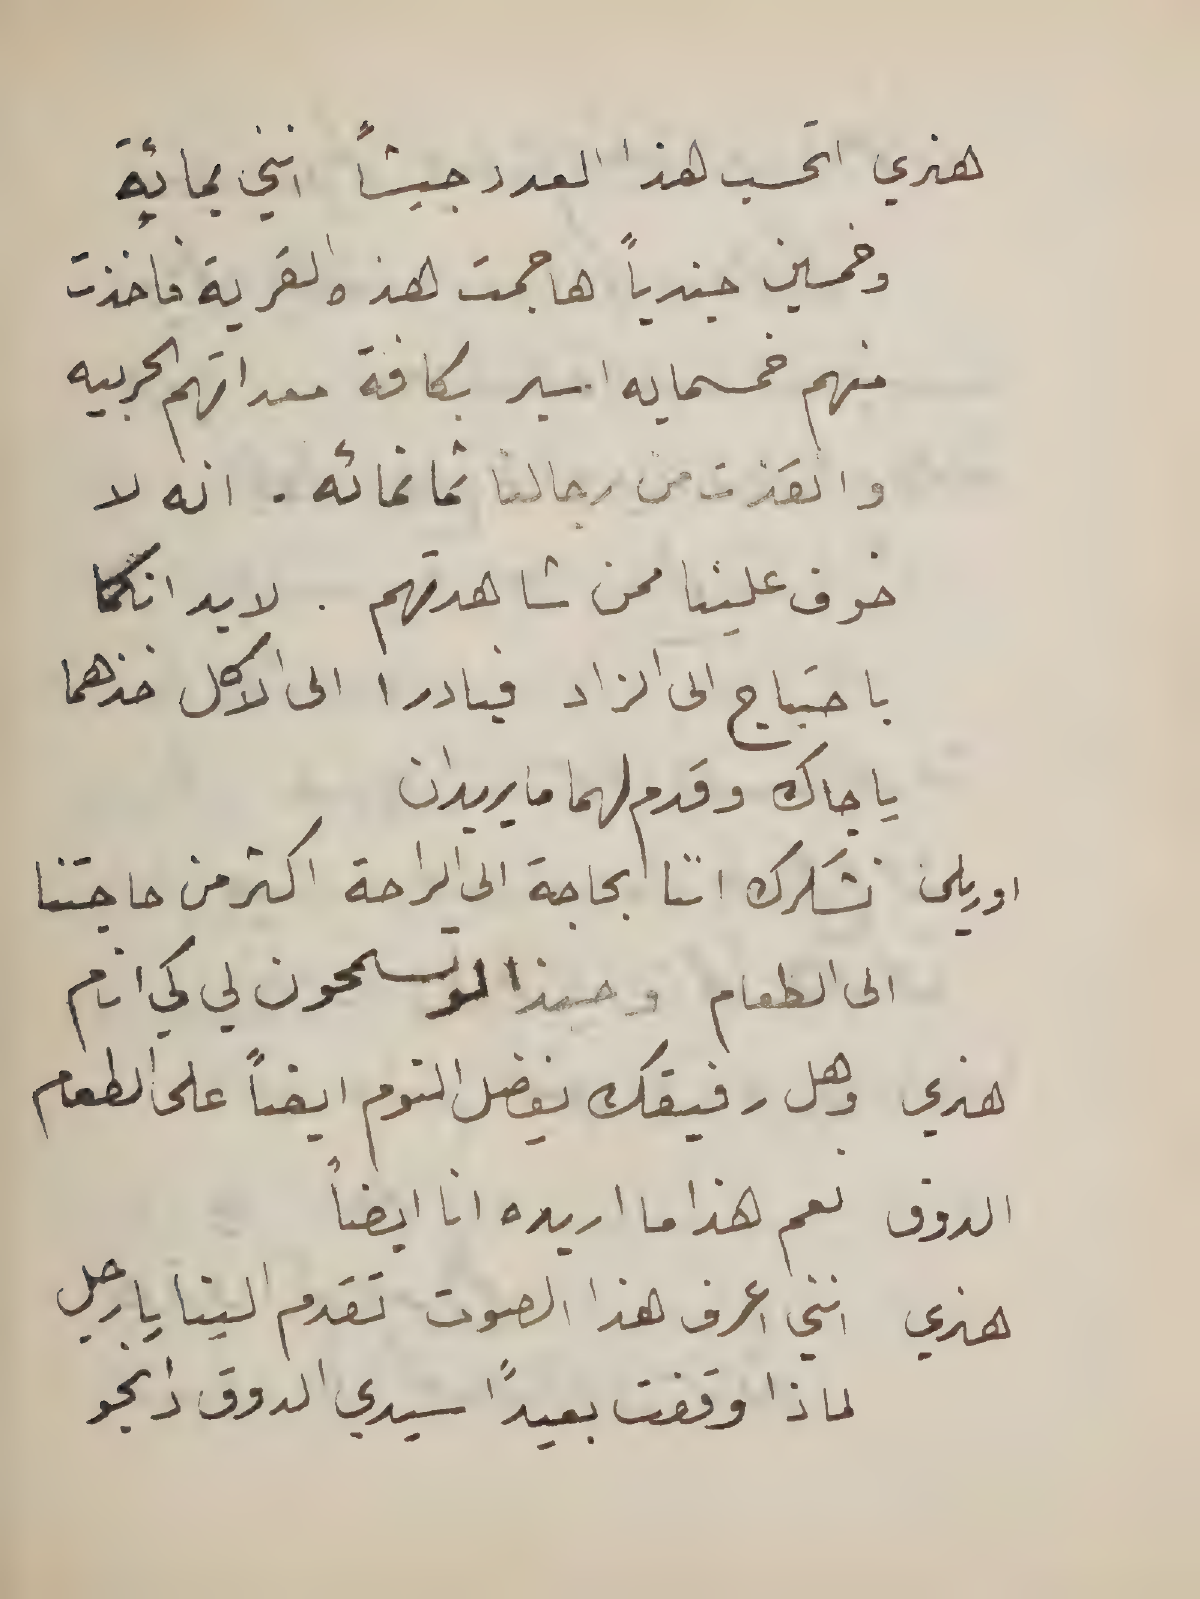 هنري اتحسب هذا العدد جيشاً انني بمائة
وخمسين جندياً هاجمت هذه القرية فاخذت
منهم خمسمايه اسير بكافة معداتهم الحربيه
وانقذت من رجالنا ثمانمائه. انه لا
خوف علينا ممن شاهدتهم. لابد انكما
باحتياج الى الزاد فبادرا الى الاكل خذهما
ياجاك وقدم لهما مايريدان
اوريلى نشكرك اننا بحاجة الى الراحة اكثر من حاجتنا
الى الطعام وحبذا لو تسمحون لي كي انام
هنري وهل رفيقك يفضل النوم ايضاً على الطعام
الدوق نعم هذا ما اريده انا ايضاً
هنري انني اعرف هذا الصوت تقدم الينا يارجل
لماذا وقفت بعيدًا سيدي الدوق دانجو